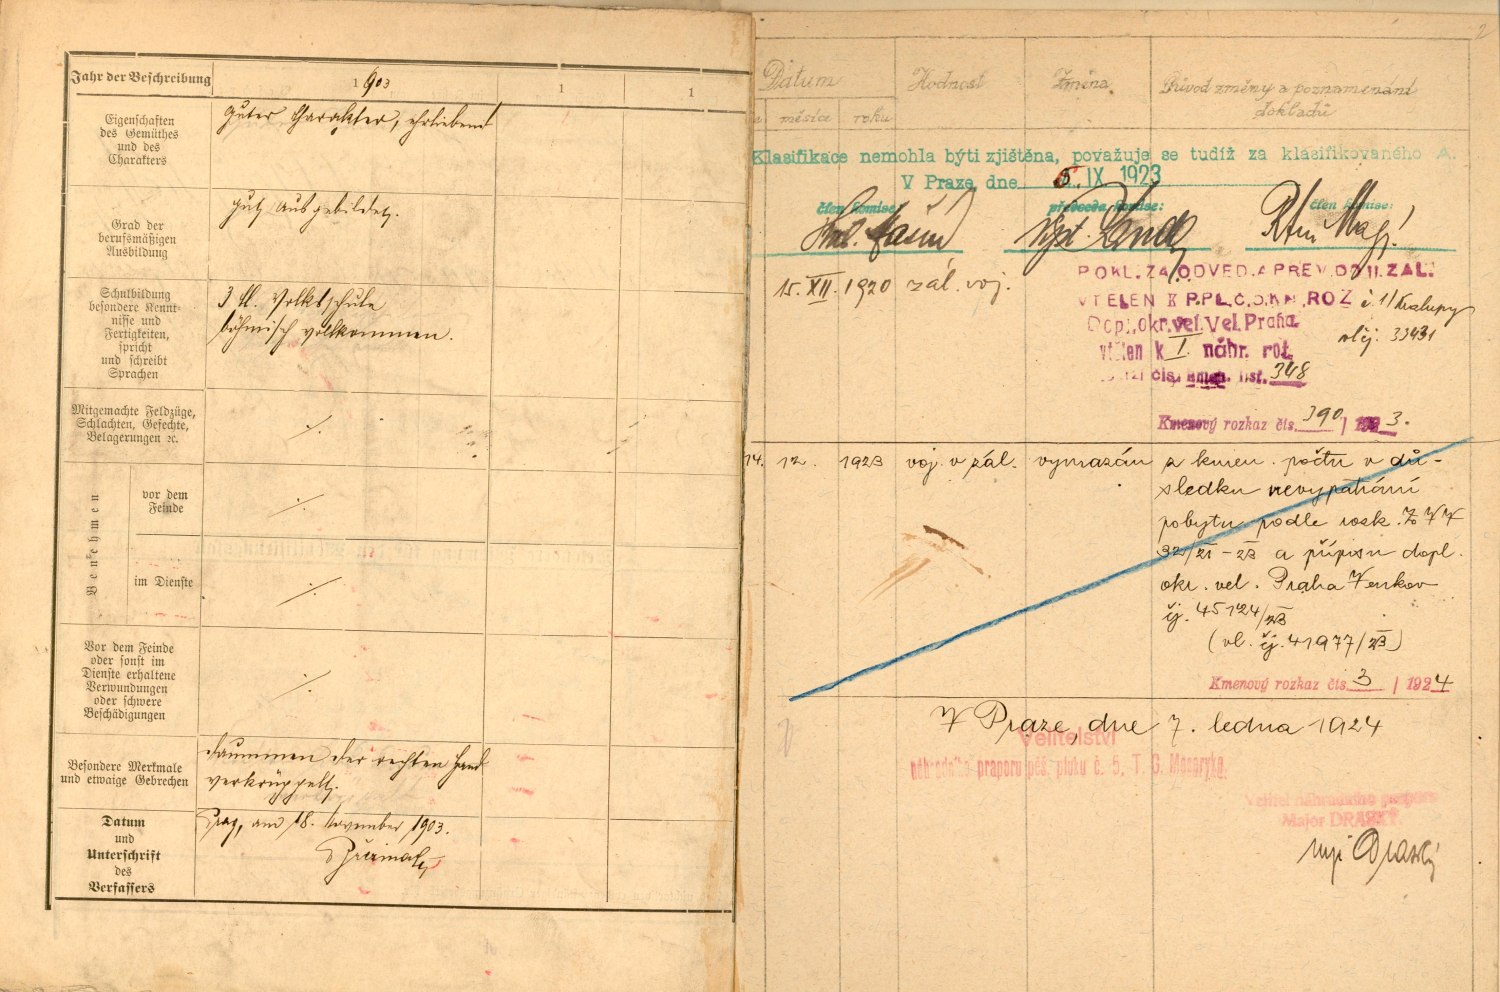 Jahr der Beschreibung
1903
1
1
Eigenschaften
des Gemüthes
und des
Charakters
guter Charakter, ehrliebend
Grad der
berufsmäßigen
Ausbildung
gut ausgebildet.
Schulbildung
besondere Kennt-
nisse und
Fertigkeiten,
spricht
und schreibt
Sprachen
3 Kl. Volksschule
böhmisch vollkommen.
Mitgemachte Feldzüge,
Schlachten, Gefechte,
Belagerungen ꝛc.
./.
Benehmen
vor dem
Feinde
./.
im Dienste
./.
Vor dem Feinde
oder sonst im
Dienste erhaltene
Verwundungen
oder schwere
Beschädigungen
./.
Besondere Merkmale
und etwaige Gebrechen
Daummen der rechten Hand
verkrüppelt.
Datum
und
Unterschrift
des
Verfassers
Prag, am 18. November 1903.
2
Datum
Hodnost
Změna
Důvod změny a poznamenání
dokladů
měsíce
roku
Klasifikace nemohla býti zjištěna, považuje se tudíž za klasifikovaného A.
V Praze, dne 5. IX 1923
člen komise:
předseda komise:
člen komise:
15. XII. 1920 zál. voj.
POKL. ZA ODVED. A PREV. DO II. ZAL.
VTELEN K P. PL. Č. 5. KN. ROZ č. 11/Kralupy
Dopl. okr. vel. Vel. Praha
včj. 33431
vtělen k I. náhr. rot.
čis. kmen. list. 348
Kmenový rozkaz čís. 390 / 1923.
14. 12. 1923 voj. v zál. vymazán z kmen. počtu v dů-
sledku nevypátrání
pobytu podle rozk. ZVV
32/XI-23 a přípisu dopl.
okr. vel. Praha Venkov
čj. 45124/23
(vl. čj. 41977/23)
Kmenový rozkaz čís. 3 / 1924
V Praze, dne 7. ledna 1924
Velitelství
náhradního praporu pěš. pluku č. 5, T. G. Masaryka.
Velitel náhradního praporu
Major DRASKÝ.
mjr Draský